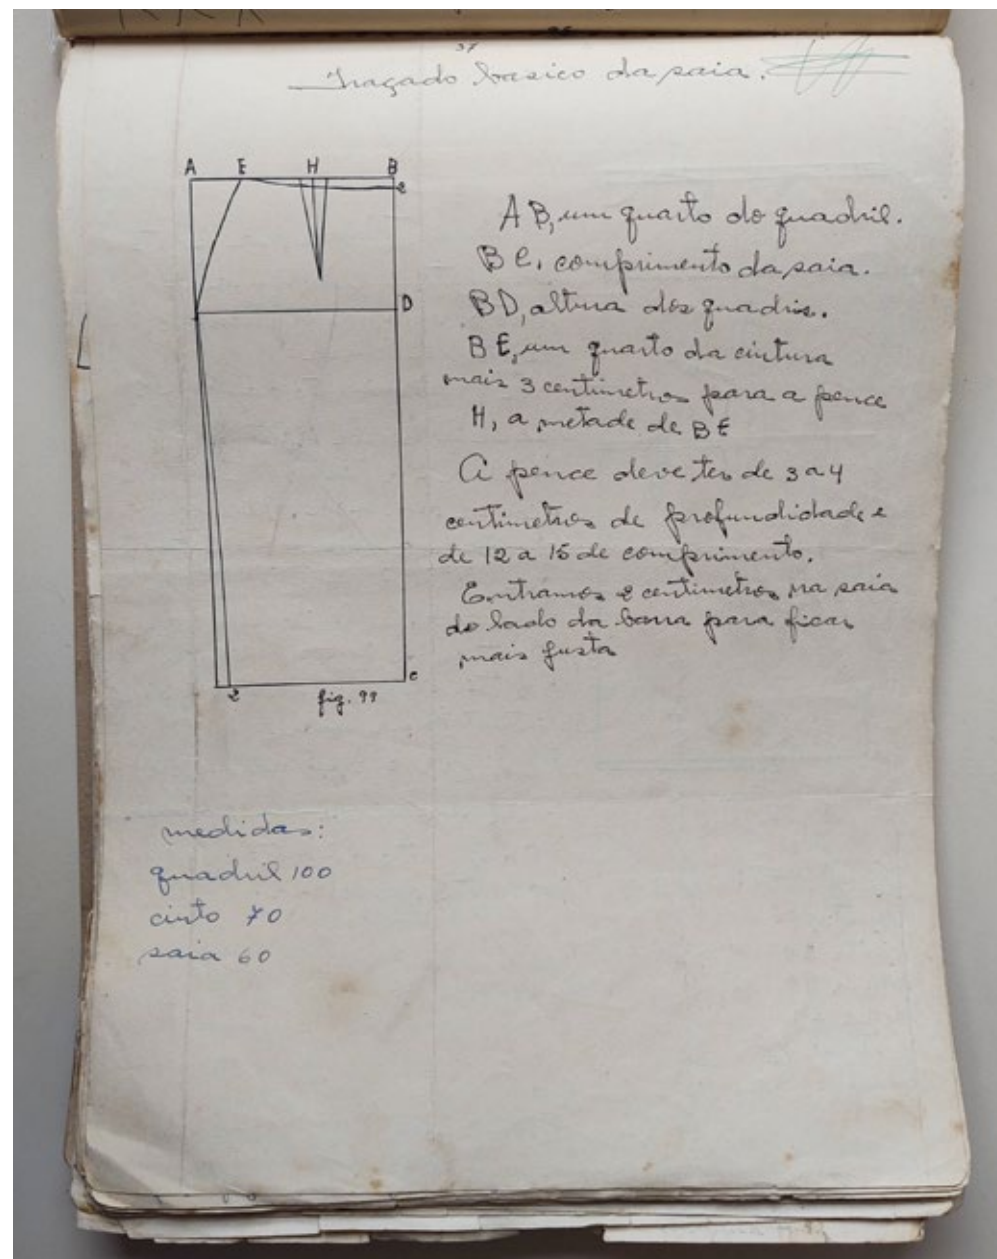 37
Traçado basico da saia.
A E H B
2
D
C
2
fig. 99
A B, um quarto do quadril.
B C, comprimento da saia.
B D, altura dos quadris.
B E, um quarto da cintura
mais 3 centimetros para a pence
H, a metade de B E
A pence deve ter de 3 a 4
centimetros de profundidade e
de 12 a 15 de comprimento.
Entramos 2 centimetros na saia
do lado da barra para ficar
mais justa
medidas:
quadril 100
cinto 70
saia 60